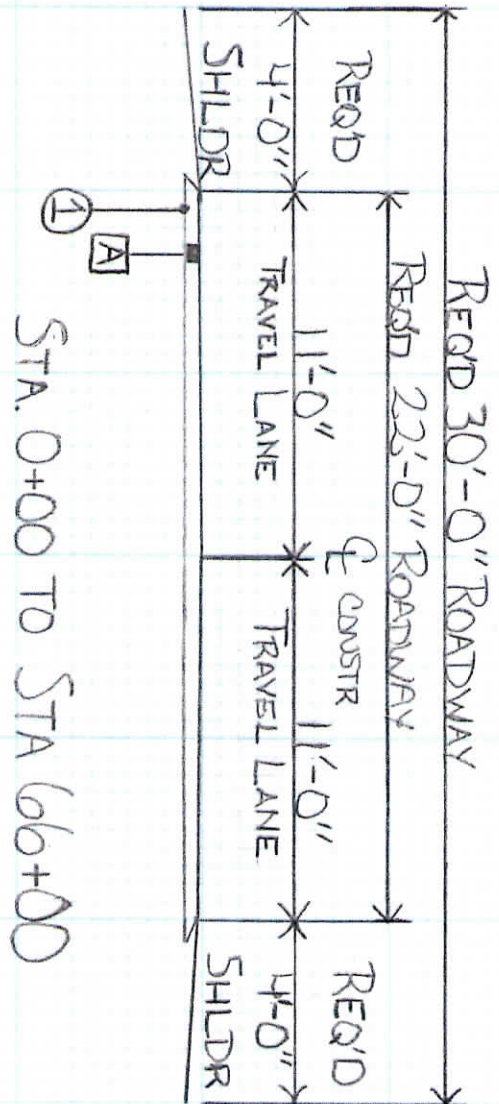 REQ'D 30'-0" ROADWAY
REQ'D 22'-0" ROADWAY
REQ'D
4'-0"
SHLDR
11'-0"
TRAVEL LANE
℄ CONSTR
11'-0"
TRAVEL LANE
REQ'D
4'-0"
SHLDR
1
A
STA. 0+00 TO STA 66+00